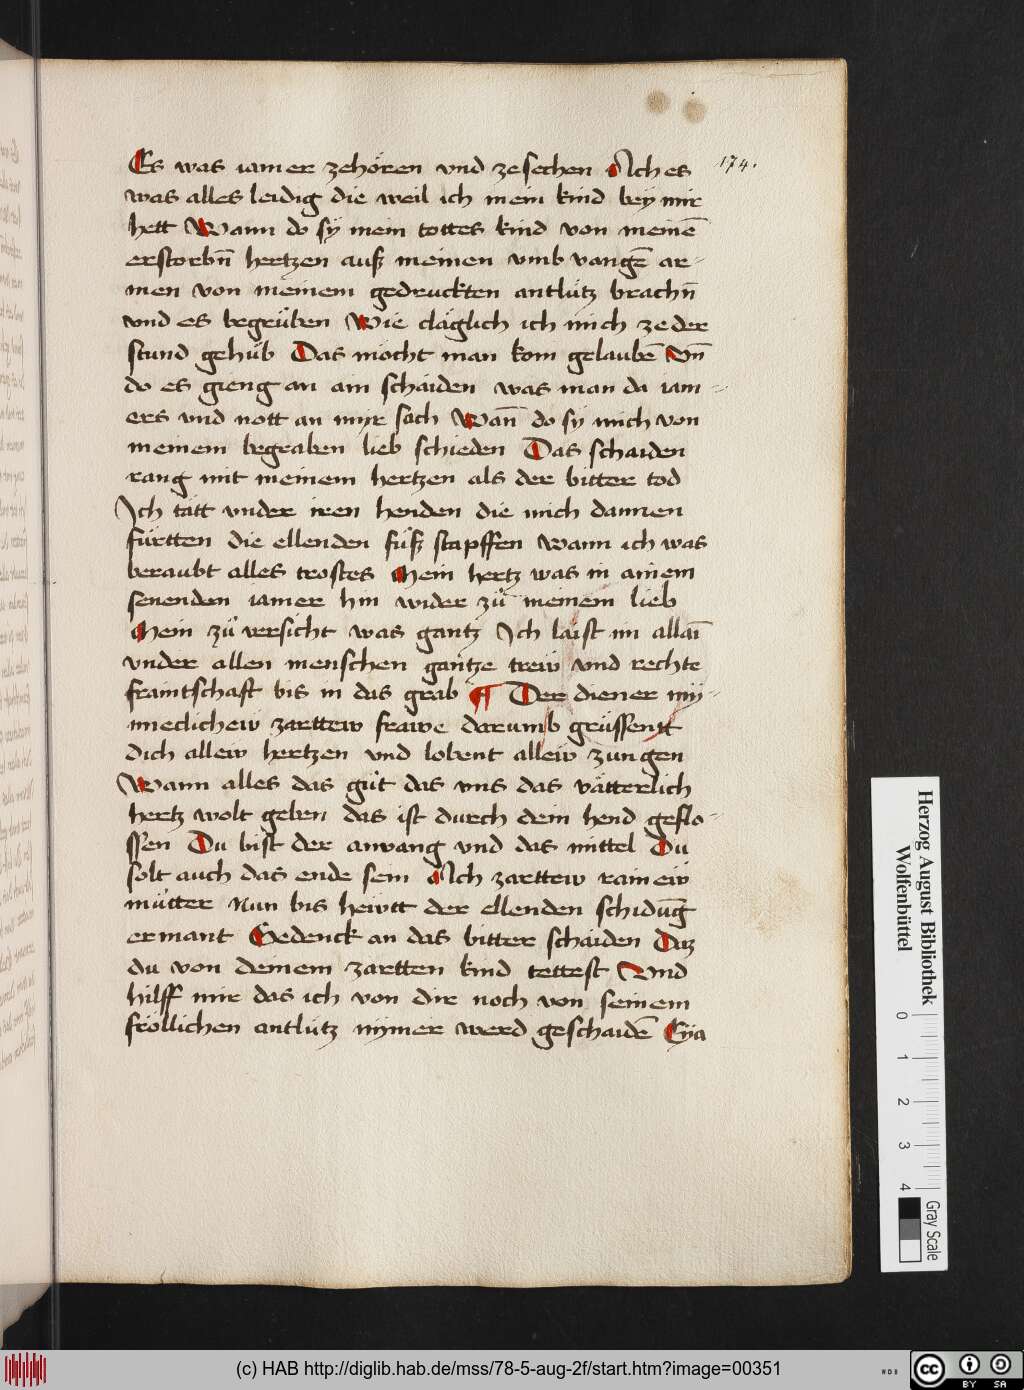 Es was iamer zehören vnd zesechen Ach es
174.
was alles leidig die weil ich mein kind bey mir
hett Wann do sÿ mein tottes kind von meinē
erstorbn̄ hertzen auß meinen vmb vangē ar-
men von meinem gedruckten antlütz brachn̄
vnd es begrüben Wie cläglich ich mich ze der
stund gehüb Das möcht man kom gelaubē Vn̄
do es gieng an ain schaiden was man da iam-
ers vnd nott an myr sach Wan̄ do sÿ mich von
meinem begraben lieb schieden Das schaiden
rang mit meinem hertzen als der bitter tod
Ich tätt vnder iren henden die mich dannen
fürtten die ellenden füß stapffen Wann ich was
beraubt alles trostes Mein hertz was in ainem
senenden iamer hin wider zů meinem lieb
Mein zů versicht was gantz Ich laist im allaī
vnder allen menschen gantze trew vnd rechte
fraintschaft bis in das grab ¶ Der diener mÿ-
nneclichew zarttew frawe darumb grüssentt
dich allew hertzen vnd lobent allew zungen
Wann alles das gůt das vns das vätterlich
hertz wolt geben das ist durch dein hend geflo-
ssen Du bist der anvang vnd das mittel Du
solt auch das ende sein Ach zarttew rainew
můtter Nun bis hewtt der ellenden schidūg
ermant Gedenck an das bitter schaiden Daz
du von deinem zartten kind tettest Vnd
hilff mir das ich von dir noch von seinem
fröllichen antlütz nÿmer werd geschaidē Eya
Herzog August Bibliothek
Wolfenbüttel
0 1 2 3 4
Gray Scale
(c) HAB http://diglib.hab.de/mss/78-5-aug-2f/start.htm?image=00351
WDB
CC BY SA